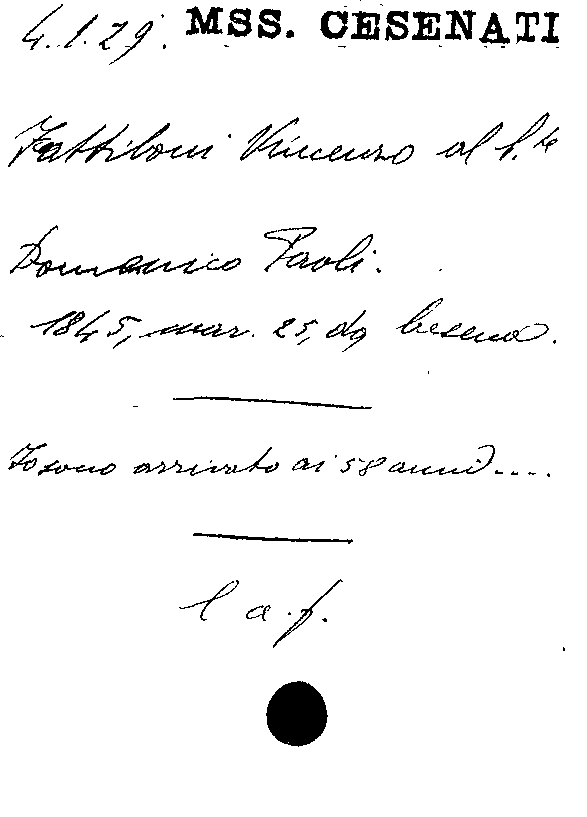 4.1.29. MSS. CESENATI
Fattiboni Vincenzo al C.te
Domenico Paoli.
1845, mar. 25, da Cesena.
Io sono arrivato ai 58 anni....
l a.f.